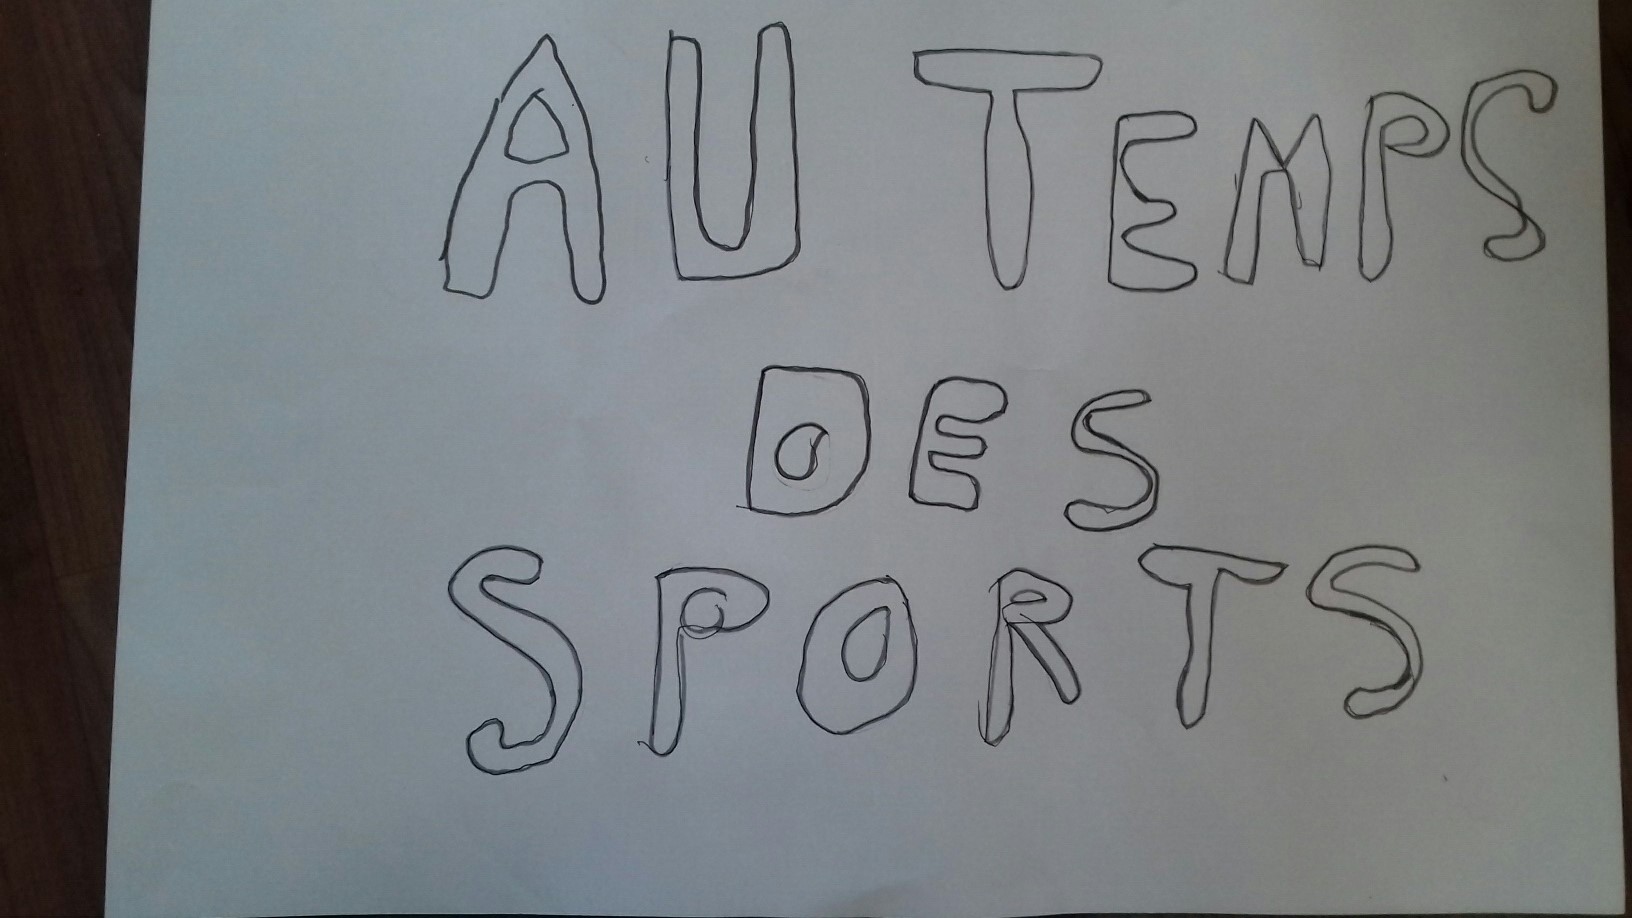 AU TEMPS
DES
SPORTS